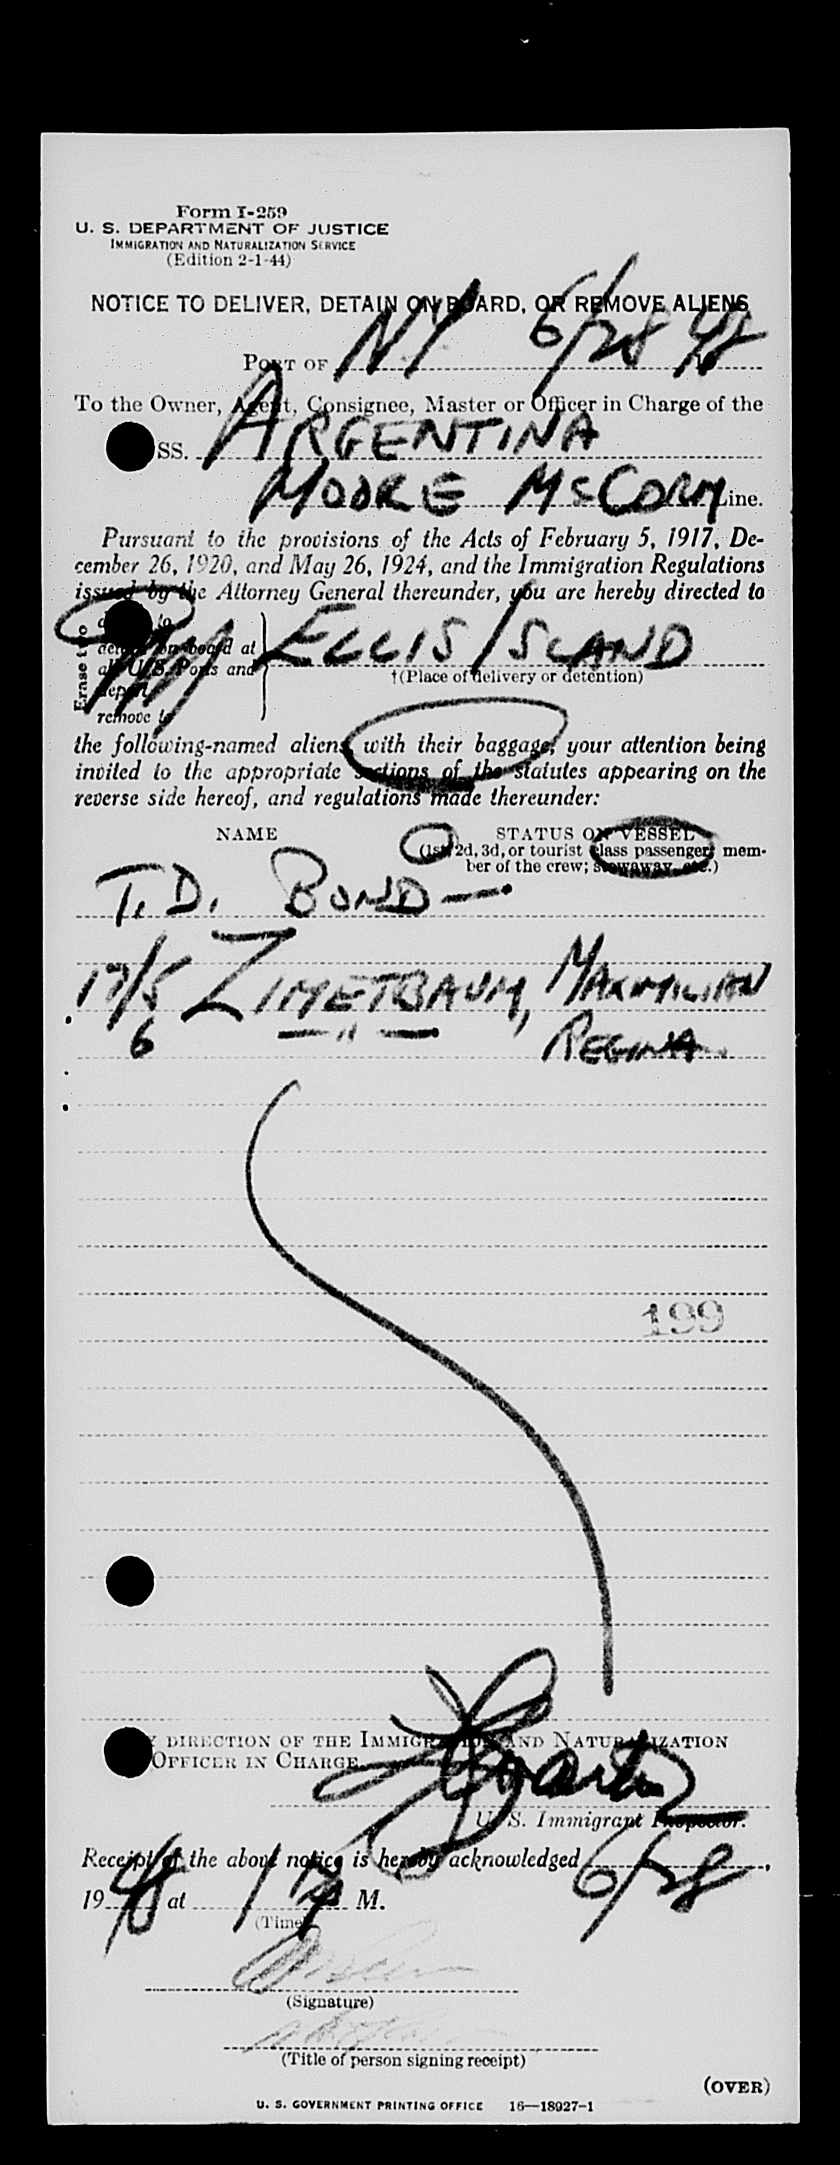 Form I-259
U. S. DEPARTMENT OF JUSTICE
IMMIGRATION AND NATURALIZATION SERVICE
(Edition 2-1-44)
NOTICE TO DELIVER, DETAIN ON BOARD, OR REMOVE ALIENS
PORT OF NY 6/28 48
To the Owner, Agent, Consignee, Master or Officer in Charge of the
SS. ARGENTINA
MOORE McCORM Line.
Pursuant to the provisions of the Acts of February 5, 1917, De-
cember 26, 1920, and May 26, 1924, and the Immigration Regulations
issued by the Attorney General thereunder, you are hereby directed to
Erase two
to
detain on board at
all U. S. Ports and
deport
remove to
ELLIS ISLAND
†(Place of delivery or detention)
the following-named aliens with their baggage, your attention being
invited to the appropriate sections of the statutes appearing on the
reverse side hereof, and regulations made thereunder:
NAME STATUS ON VESSEL
(1st, 2d, 3d, or tourist class passenger; mem-
ber of the crew; stowaway, etc.)
T. D. BOND —
17/5 ZIMETBAUM, MAXIMILIAN
6 — " — REGINA
199
BY DIRECTION OF THE IMMIGRATION AND NATURALIZATION
OFFICER IN CHARGE
U. S. Immigrant Inspector.
Receipt of the above notice is hereby acknowledged 6/28,
1948 at 1 P M.
(Time)
(Signature)
(Title of person signing receipt)
(OVER)
U. S. GOVERNMENT PRINTING OFFICE 16—18927-1